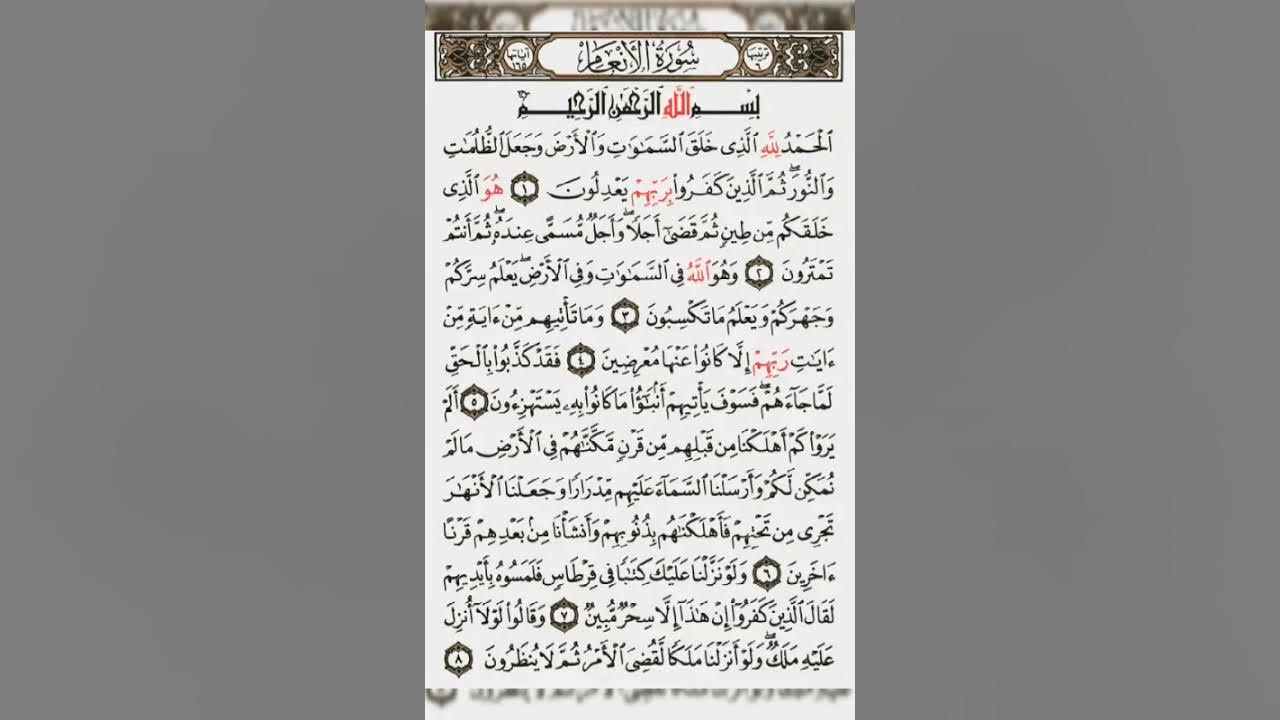 سُورَةُ الأَنْعَامِ
ترتيبها ٦
آياتها ١٦٥
بِسْمِ ٱللَّهِ ٱلرَّحْمَٰنِ ٱلرَّحِيمِ
ٱلْحَمْدُ لِلَّهِ ٱلَّذِى خَلَقَ ٱلسَّمَٰوَٰتِ وَٱلْأَرْضَ وَجَعَلَ ٱلظُّلُمَٰتِ
وَٱلنُّورَ ۖ ثُمَّ ٱلَّذِينَ كَفَرُوا۟ بِرَبِّهِمْ يَعْدِلُونَ ١ هُوَ ٱلَّذِى
خَلَقَكُم مِّن طِينٍ ثُمَّ قَضَىٰٓ أَجَلًا ۖ وَأَجَلٌ مُّسَمًّى عِندَهُۥ ۖ ثُمَّ أَنتُمْ
تَمْتَرُونَ ٢ وَهُوَ ٱللَّهُ فِى ٱلسَّمَٰوَٰتِ وَفِى ٱلْأَرْضِ ۖ يَعْلَمُ سِرَّكُمْ
وَجَهْرَكُمْ وَيَعْلَمُ مَا تَكْسِبُونَ ٣ وَمَا تَأْتِيهِم مِّنْ ءَايَةٍ مِّنْ
ءَايَٰتِ رَبِّهِمْ إِلَّا كَانُوا۟ عَنْهَا مُعْرِضِينَ ٤ فَقَدْ كَذَّبُوا۟ بِٱلْحَقِّ
لَمَّا جَآءَهُمْ ۖ فَسَوْفَ يَأْتِيهِمْ أَنۢبَٰٓؤُا۟ مَا كَانُوا۟ بِهِۦ يَسْتَهْزِءُونَ ٥ أَلَمْ
يَرَوْا۟ كَمْ أَهْلَكْنَا مِن قَبْلِهِم مِّن قَرْنٍ مَّكَّنَّٰهُمْ فِى ٱلْأَرْضِ مَا لَمْ
نُمَكِّن لَّكُمْ وَأَرْسَلْنَا ٱلسَّمَآءَ عَلَيْهِم مِّدْرَارًا وَجَعَلْنَا ٱلْأَنْهَٰرَ
تَجْرِى مِن تَحْتِهِمْ فَأَهْلَكْنَٰهُم بِذُنُوبِهِمْ وَأَنشَأْنَا مِنۢ بَعْدِهِمْ قَرْنًا
ءَاخَرِينَ ٦ وَلَوْ نَزَّلْنَا عَلَيْكَ كِتَٰبًا فِى قِرْطَاسٍ فَلَمَسُوهُ بِأَيْدِيهِمْ
لَقَالَ ٱلَّذِينَ كَفَرُوٓا۟ إِنْ هَٰذَآ إِلَّا سِحْرٌ مُّبِينٌ ٧ وَقَالُوا۟ لَوْلَآ أُنزِلَ
عَلَيْهِ مَلَكٌ ۖ وَلَوْ أَنزَلْنَا مَلَكًا لَّقُضِىَ ٱلْأَمْرُ ثُمَّ لَا يُنظَرُونَ ٨